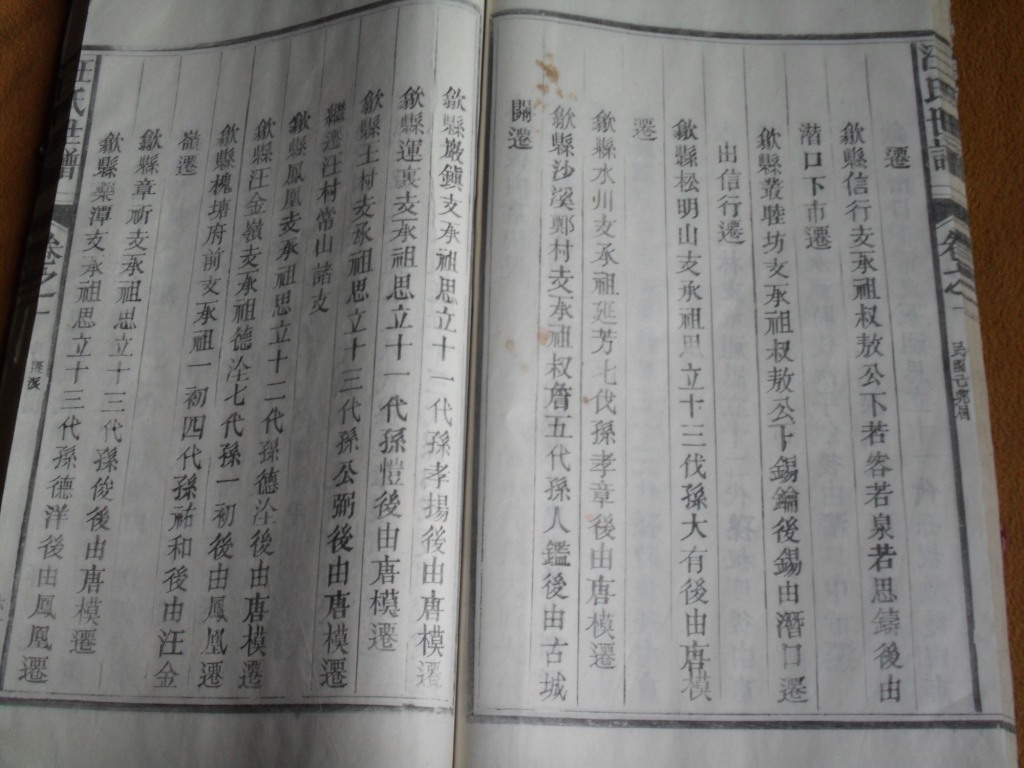 汪氏世譜
卷之一
遷
歙縣信行支承祖叔敖公下若容若泉若思鑄後由
潛口下市遷
歙縣叢睦坊支承祖叔敖公下錫鑰後錫由潛口遷
出信行遷
歙縣松明山支承祖思立十三代孫大有後由唐模
遷
歙縣水州支承祖延芳七伐孫孝章後由唐模遷
歙縣沙溪鄭村支承祖叔詹五代孫人鑑後由古城
關遷
歙縣巖鎮支承祖思立十一代孫孝揚後由唐模遷
歙縣運裏支承祖思立十一代孫愷後由唐模遷
歙縣土村支承祖思立十三代孫公弼後由唐模遷
繼遷汪村常山諸支
歙縣鳳凰支承祖思立十二代孫德洤後由唐模遷
歙縣汪金嶺支承祖德洤七代孫一初後由鳳凰遷
歙縣槐塘府前支承祖一初四代孫祐和後由汪金
嶺遷
歙縣章祈支承祖思立十三代孫俊後由唐模遷
歙縣藥潭支承祖思立十三代孫德洋後由鳳凰遷
汪氏世譜
卷之一